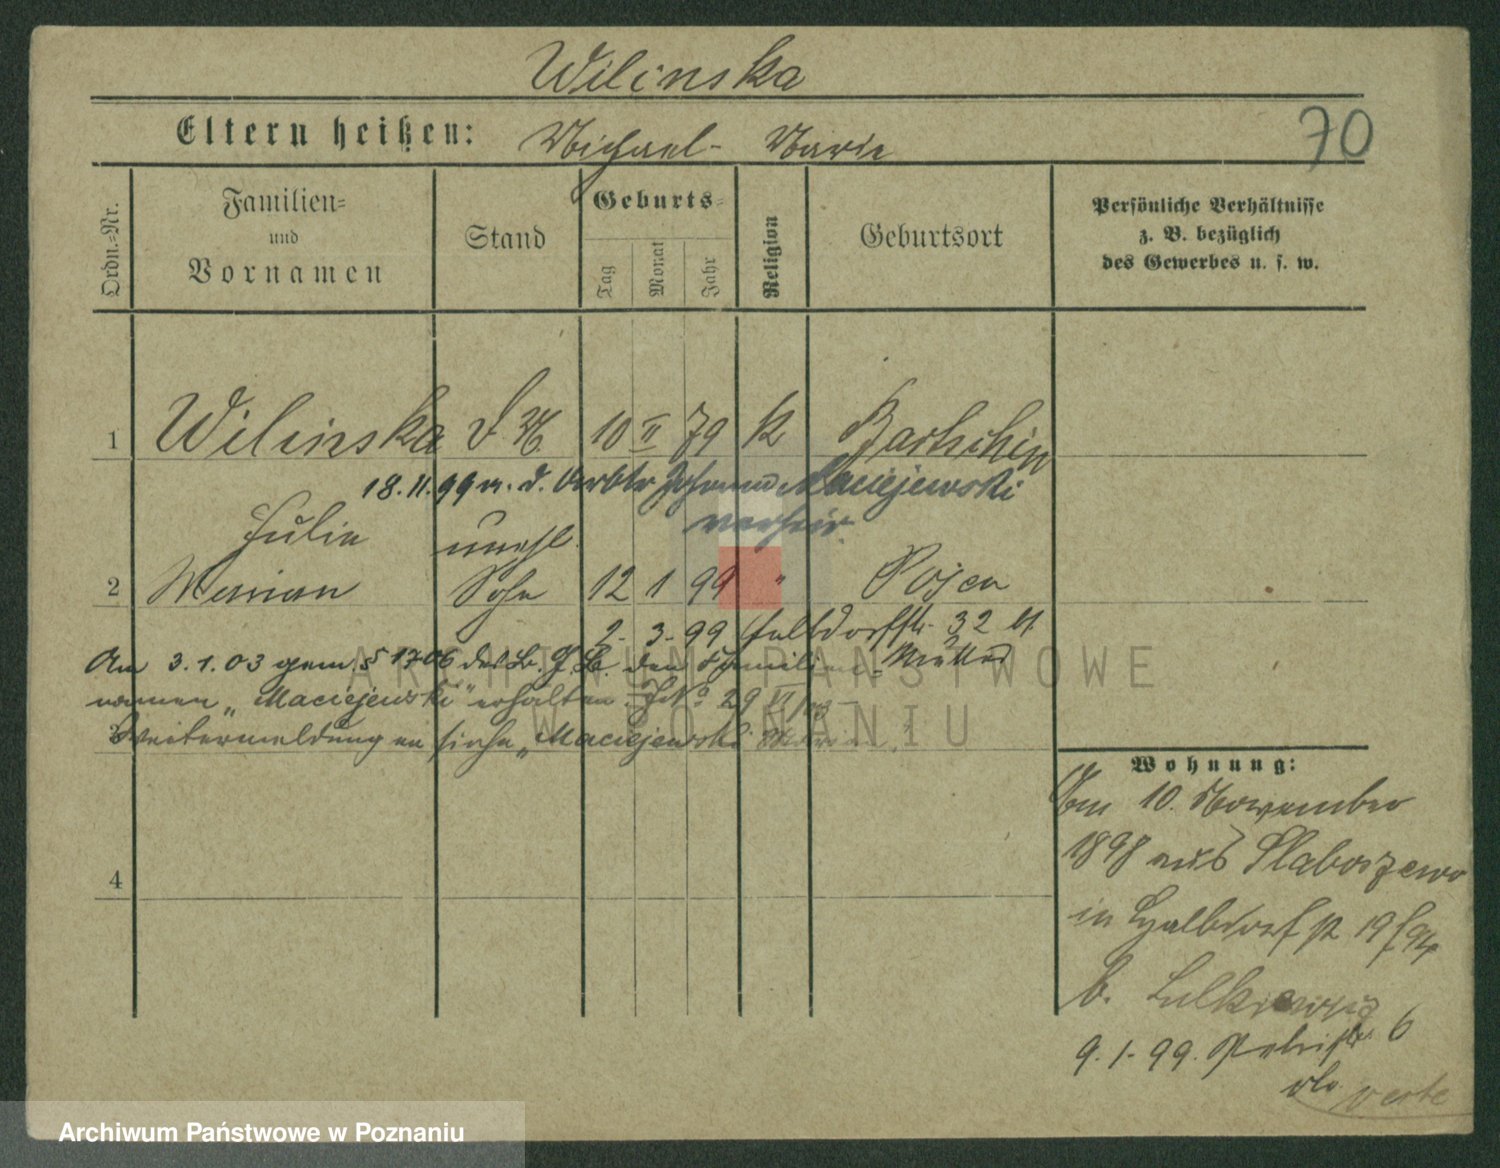 Wilinska
Eltern heißen: Michael - Marie
70
Ordn.=Nr.
Familien=
und
Vornamen
Stand
Geburts=
Tag
Monat
Jahr
Religion
Geburtsort
Persönliche Verhältnisse
z. B. bezüglich
des Gewerbes u. s. w.
1 Wilinska D. M. 10 II 79 K Bartschin
18.11.99 m. d. Arbtr Johann Maciejewski
verheir.
Julie unehl.
2 Marian Sohn 12 1 99 " Posen
2- 3.-99 Halbdorfstr. 32 bei
Mutter
Am 3.1.03 gem. § 1706 des B. G. B. den Familien-
namen „Maciejewski“ erhalten. J.No 29 VI/03
Weitermeldungen siehe „Maciejewski
4
Wohnung:
Am 10. November
1898 aus Slaboszewo
in Halbdorfstr 19
b.
9.1.99. Petristr. 6
verte
ARCHIWUM PAŃSTWOWE
W POZNANIU
Archiwum Państwowe w Poznaniu